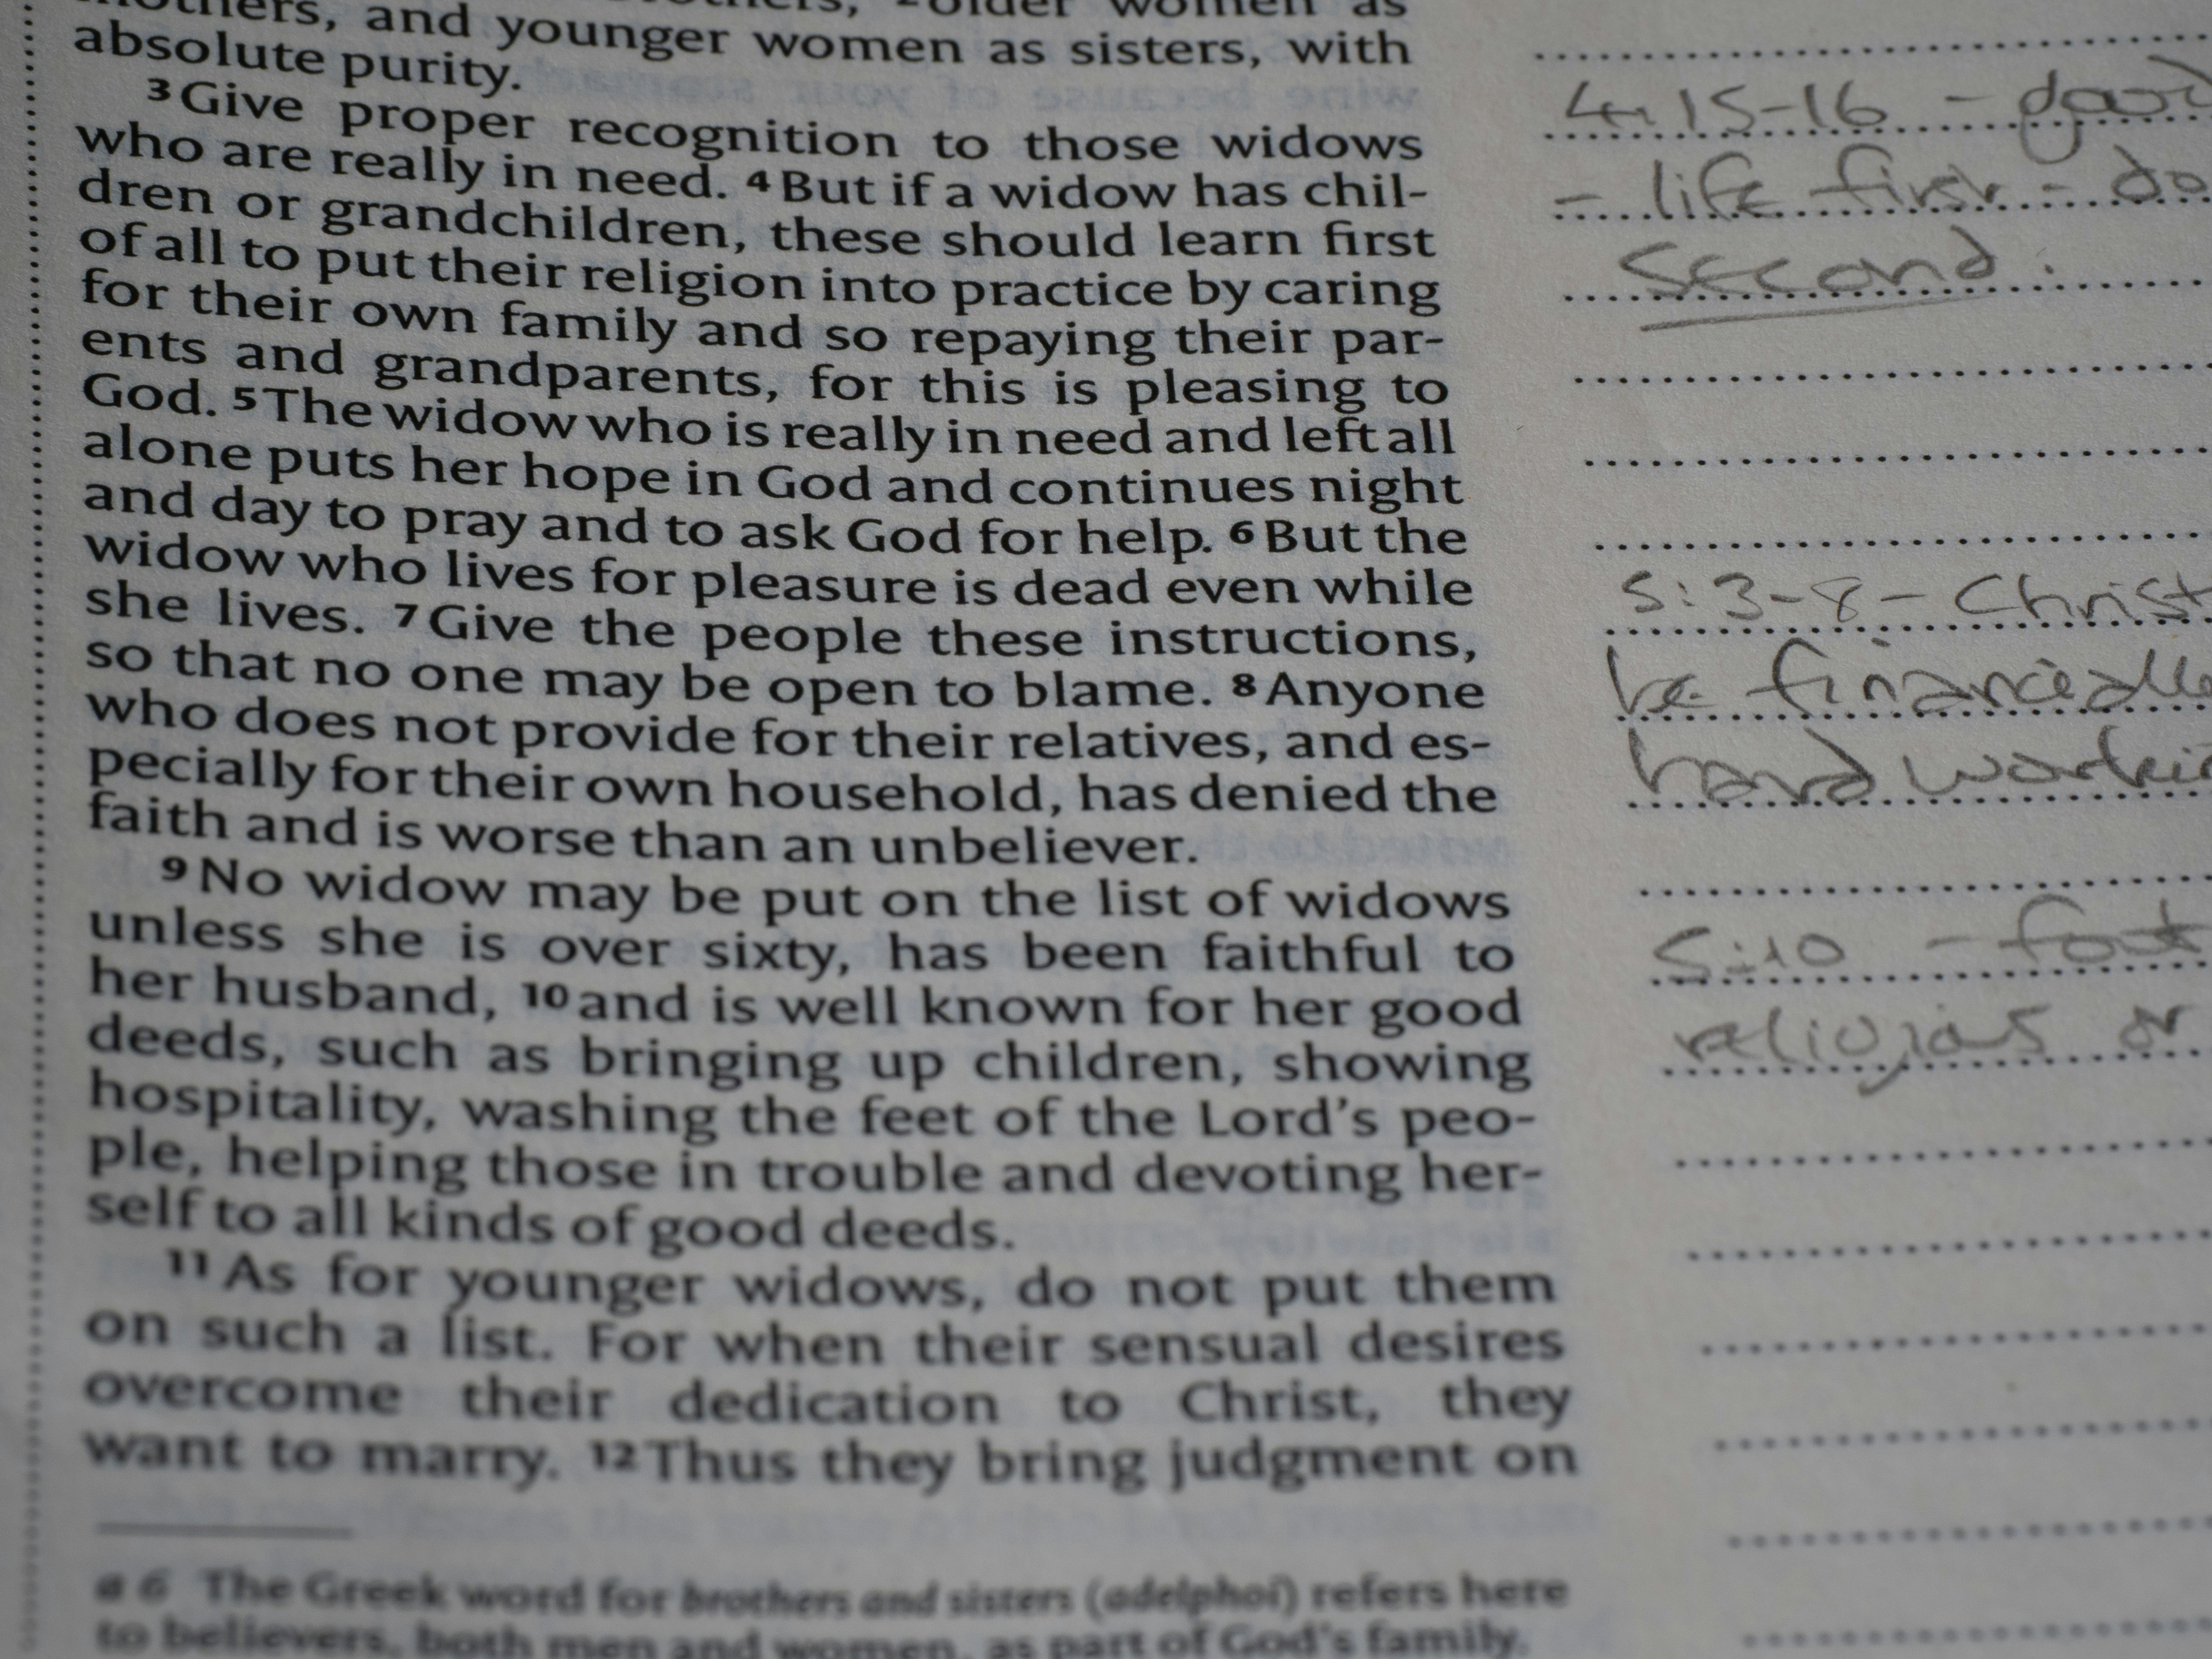 mothers, and younger women as sisters, with
absolute purity.
3 Give proper recognition to those widows
who are really in need. 4 But if a widow has chil-
dren or grandchildren, these should learn first
of all to put their religion into practice by caring
for their own family and so repaying their par-
ents and grandparents, for this is pleasing to
God. 5 The widow who is really in need and left all
alone puts her hope in God and continues night
and day to pray and to ask God for help. 6 But the
widow who lives for pleasure is dead even while
she lives. 7 Give the people these instructions,
so that no one may be open to blame. 8 Anyone
who does not provide for their relatives, and es-
pecially for their own household, has denied the
faith and is worse than an unbeliever.
9 No widow may be put on the list of widows
unless she is over sixty, has been faithful to
her husband, 10 and is well known for her good
deeds, such as bringing up children, showing
hospitality, washing the feet of the Lord's peo-
ple, helping those in trouble and devoting her-
self to all kinds of good deeds.
11 As for younger widows, do not put them
on such a list. For when their sensual desires
overcome their dedication to Christ, they
want to marry. 12 Thus they bring judgment on
a 6 The Greek word for brothers and sisters (adelphoi) refers here
to believers, both men and women, as part of God's family.
4:15-16 -
- life first - do
second.
5:3-8 - Christ
be financially
hard workin
5:10 -
or